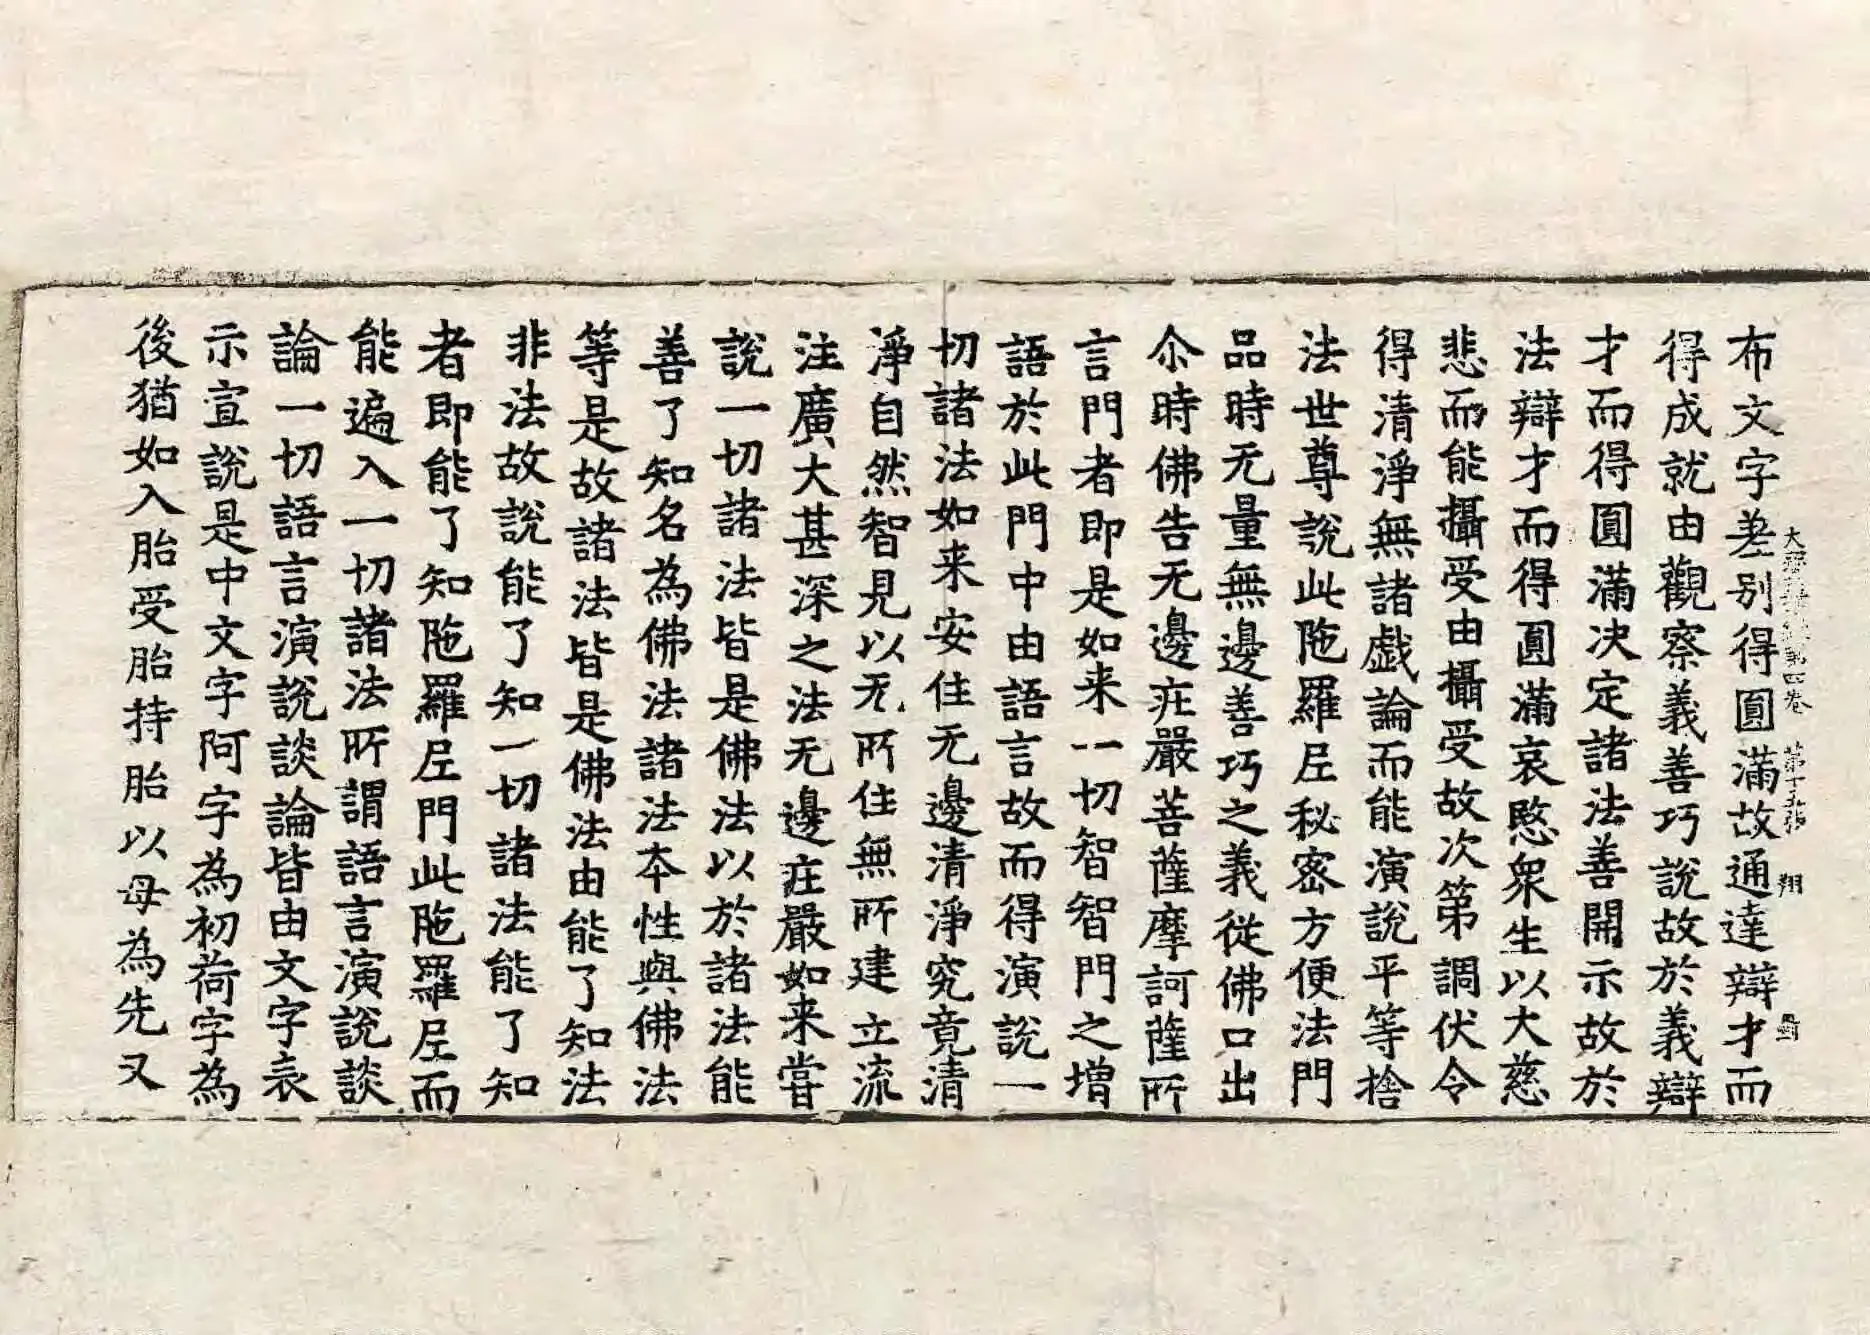 布文字差别得圓滿故通達辯才而
得成就由觀察義善巧說故於義辯
才而得圓滿决定諸法善開示故於
法辯才而得圓滿哀愍衆生以大慈
悲而能攝受由攝受故次第調伏令
得清淨無諸戲論而能演說平等捨
法世尊說此陁羅𡰱秘密方便法門
品時无量無邊善巧之義從佛口出
尒時佛告无邊㽵嚴菩薩摩訶薩所
言門者即是如来一切智智門之增
語於此門中由語言故而得演說一
切諸法如来安住无邊清淨究竟清
淨自然智見以无所住無所建立流
注廣大甚深之法无邊㽵嚴如来甞
說一切諸法皆是佛法以於諸法能
善了知名為佛法諸法本性與佛法
等是故諸法皆是佛法由能了知法
非法故說能了知一切諸法能了知
者即能了知陁羅𡰱門此陁羅𡰱而
能遍入一切諸法所謂語言演說談
論一切語言演說談論皆由文字表
示宣說是中文字阿字為初荷字為
後猶如入胎受胎持胎以母為先又
第四卷 第十五張 翔